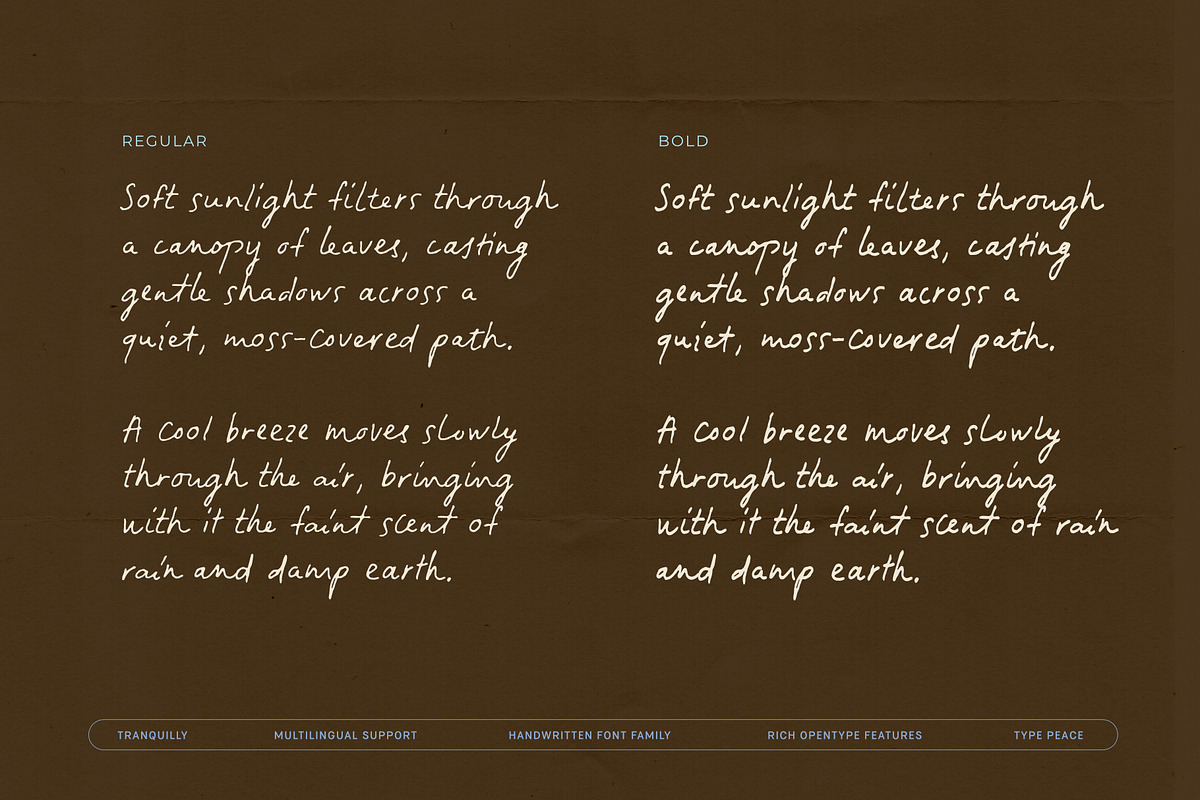 REGULAR
Soft sunlight filters through
a canopy of leaves, casting
gentle shadows across a
quiet, moss-covered path.
A cool breeze moves slowly
through the air, bringing
with it the faint scent of
rain and damp earth.
BOLD
Soft sunlight filters through
a canopy of leaves, casting
gentle shadows across a
quiet, moss-covered path.
A cool breeze moves slowly
through the air, bringing
with it the faint scent of rain
and damp earth.
TRANQUILLY MULTILINGUAL SUPPORT HANDWRITTEN FONT FAMILY RICH OPENTYPE FEATURES TYPE PEACE